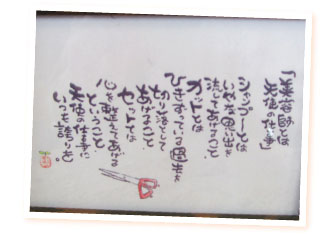 「美容室とは
天使の仕事」
シャンプーとは
いやな思い出を
流してあげること
カットとは
ひきずっている過去を
切り落として
あげること
セットとは
心を整えてあげる
ということ
天使の仕事に
いつも誇りを。